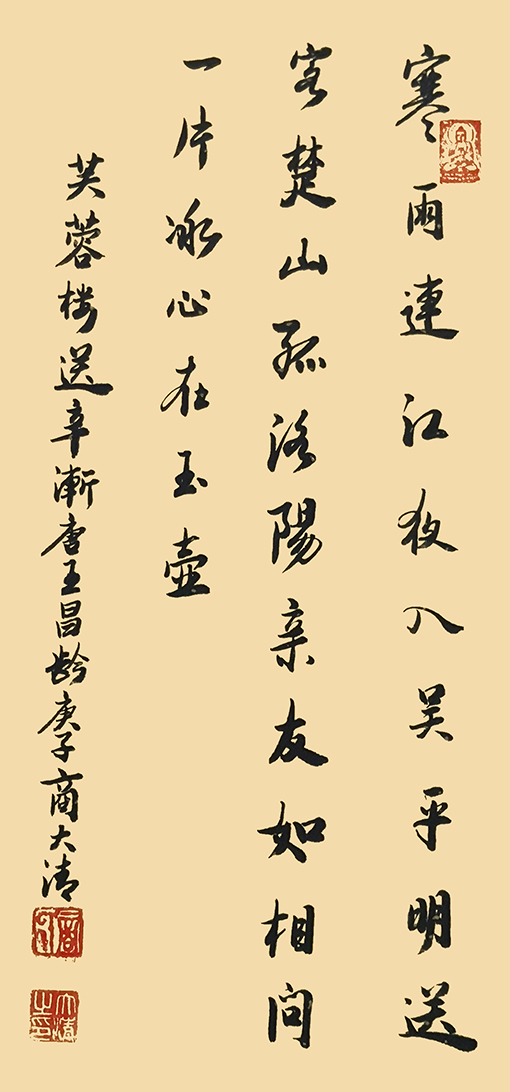 寒雨連江夜入吴平明送
客楚山孤洛陽亲友如相问
一片冰心在玉壺
芙蓉楼送辛渐唐王昌龄庚子商大清